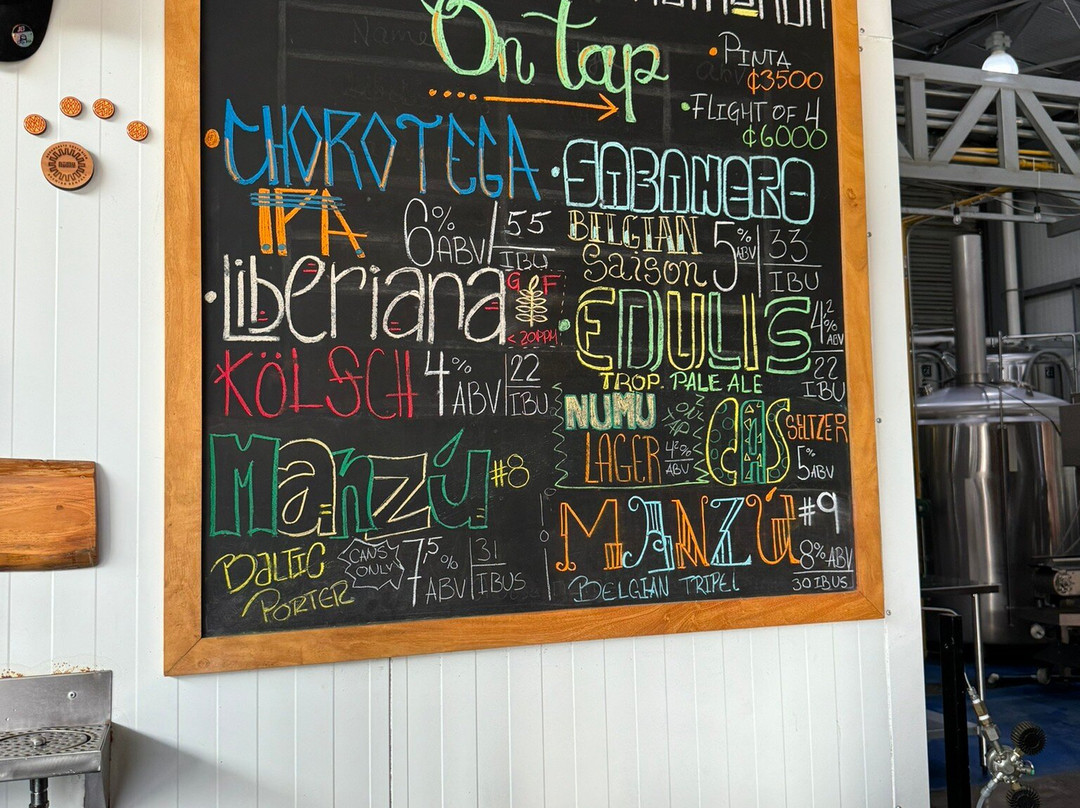 On tap
PINTA
₡3500
FLIGHT OF 4
₡6000
CHOROTEGA
IPA
6% ABV
55 IBU
Liberiana
G F
< 20PPM
KÖLSCH
4% ABV
22 IBU
Manzú #8
BALTIC PORTER
CANS ONLY
7.5% ABV
31 IBUS
SABANERO
BELGIAN Saison
5% ABV
33 IBU
EDULIS
4.2% ABV
22 IBU
TROP. PALE ALE
NUMU
LAGER
4.2% ABV
CAS SELTZER
5% ABV
MANZÚ #9
BELGIAN TRIPEL
8% ABV
30 IBUS